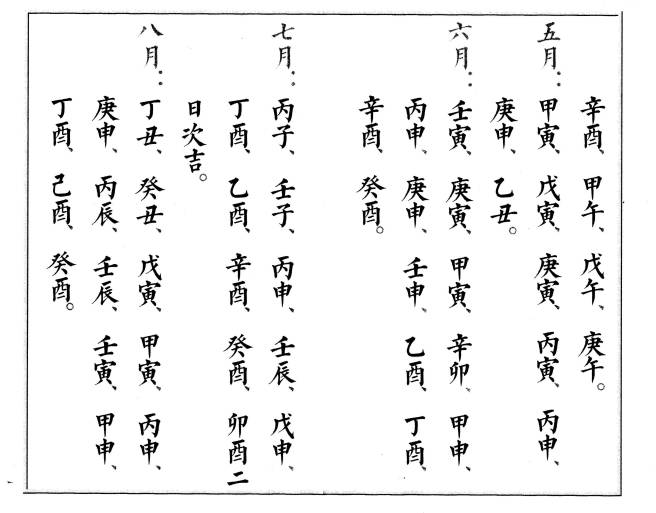 辛酉、甲午、戊午、庚午。
五月：甲寅、戊寅、庚寅、丙寅、丙申、
庚申、乙丑。
六月：壬寅、庚寅、甲寅、辛卯、甲申、
丙申、庚申、壬申、乙酉、丁酉、
辛酉、癸酉。
七月：丙子、壬子、丙申、壬辰、戊申、
丁酉、乙酉、辛酉、癸酉、卯酉二
日次吉。
八月：丁丑、癸丑、戊寅、甲寅、丙申、
庚申、丙辰、壬辰、壬寅、甲申、
丁酉、己酉、癸酉。